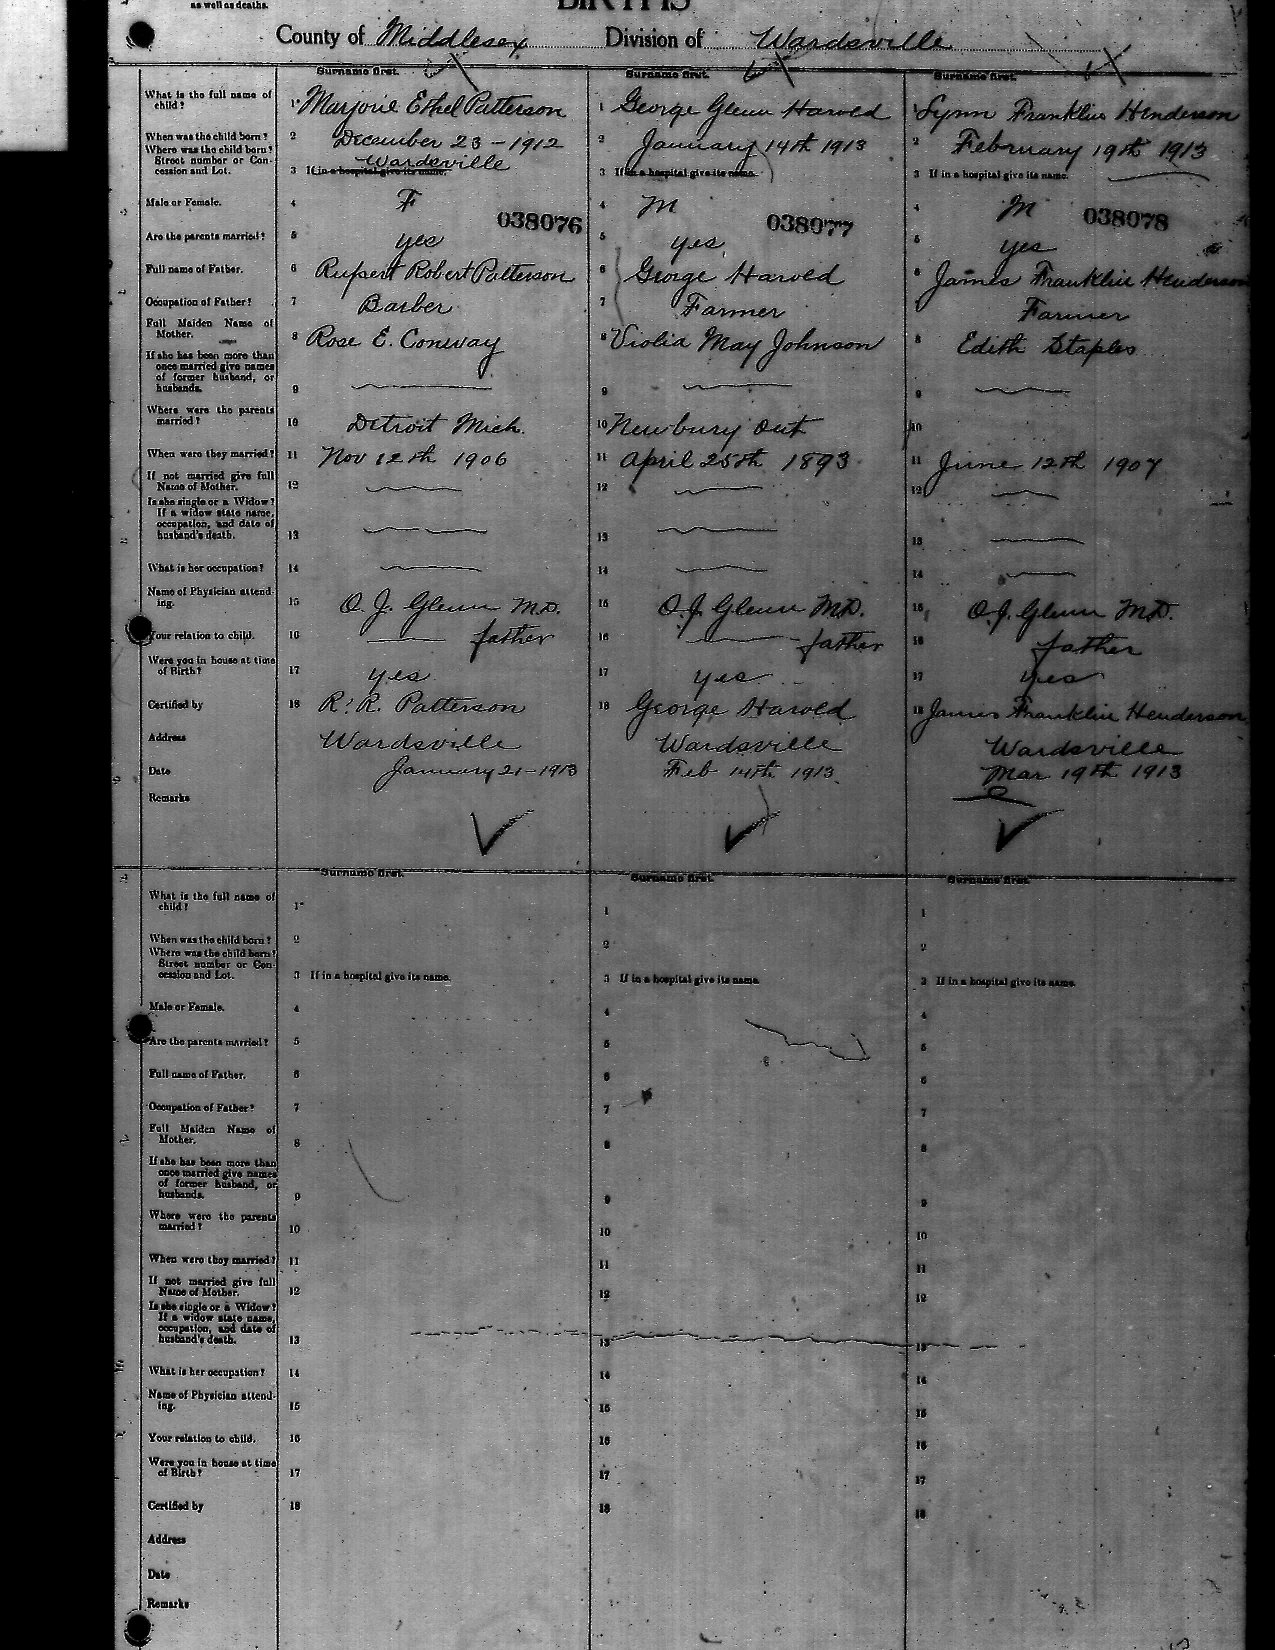 as well as deaths.
BIRTHS
County of Middlesex Division of Wardsville
Surname first. Surname first. Surname first.
What is the full name of child? 1 Marjorie Ethel Patterson 1 George Glenn Harold 1 Lynn Franklin Henderson
When was the child born? 2 December 23 - 1912 2 January 14th 1913 2 February 19th 1913
Where was the child born? Street number or Concession and Lot. 3 If in a hospital give its name. Wardsville 3 If in a hospital give its name. 3 If in a hospital give its name.
Male or Female. 4 F 4 M 4 M
038076 038077 038078
Are the parents married? 5 yes 5 yes 5 yes
Full name of Father. 6 Rupert Robert Patterson 6 George Harold 6 James Franklin Henderson
Occupation of Father? 7 Barber 7 Farmer Farmer
Full Maiden Name of Mother. 8 Rose E. Conway 8 Violia May Johnson 8 Edith Staples
If she has been more than once married give names of former husband, or husbands. 9 9 9
Where were the parents married? 10 Detroit Mich. 10 Newbury Ont 10
When were they married? 11 Nov 12th 1906 11 April 25th 1893 11 June 12th 1907
If not married give full Name of Mother. 12 12 12
Is she single or a Widow? If a widow state name, occupation, and date of husband's death. 13 13 13
What is her occupation? 14 14 14
Name of Physician attending. 15 O. J. Glenn M.D. 15 O. J. Glenn M.D. 15 O. J. Glenn M.D.
Your relation to child. 16 father 16 father 16 father
Were you in house at time of Birth? 17 yes 17 yes 17 yes
Certified by 18 R. R. Patterson 18 George Harold 18 James Franklin Henderson
Address Wardsville Wardsville Wardsville
Date January 21 - 1913 Feb 14th 1913 Mar 19th 1913
Remarks
Surname first. Surname first. Surname first.
What is the full name of child? 1 1 1
When was the child born? 2 2 2
Where was the child born? Street number or Concession and Lot. 3 If in a hospital give its name. 3 If in a hospital give its name. 3 If in a hospital give its name.
Male or Female. 4 4 4
Are the parents married? 5 5 5
Full name of Father. 6 6 6
Occupation of Father? 7 7 7
Full Maiden Name of Mother. 8 8 8
If she has been more than once married give names of former husband, or husbands. 9 9 9
Where were the parents married? 10 10 10
When were they married? 11 11 11
If not married give full Name of Mother. 12 12 12
Is she single or a Widow? If a widow state name, occupation, and date of husband's death. 13 13 13
What is her occupation? 14 14 14
Name of Physician attending. 15 15 15
Your relation to child. 16 16 16
Were you in house at time of Birth? 17 17 17
Certified by 18 18 18
Address
Date
Remarks